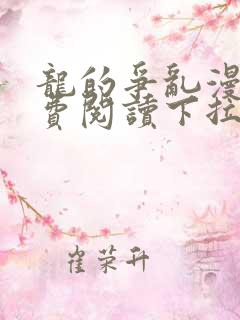 龍的爭亂漫
費閱讀下拉
崔荣升